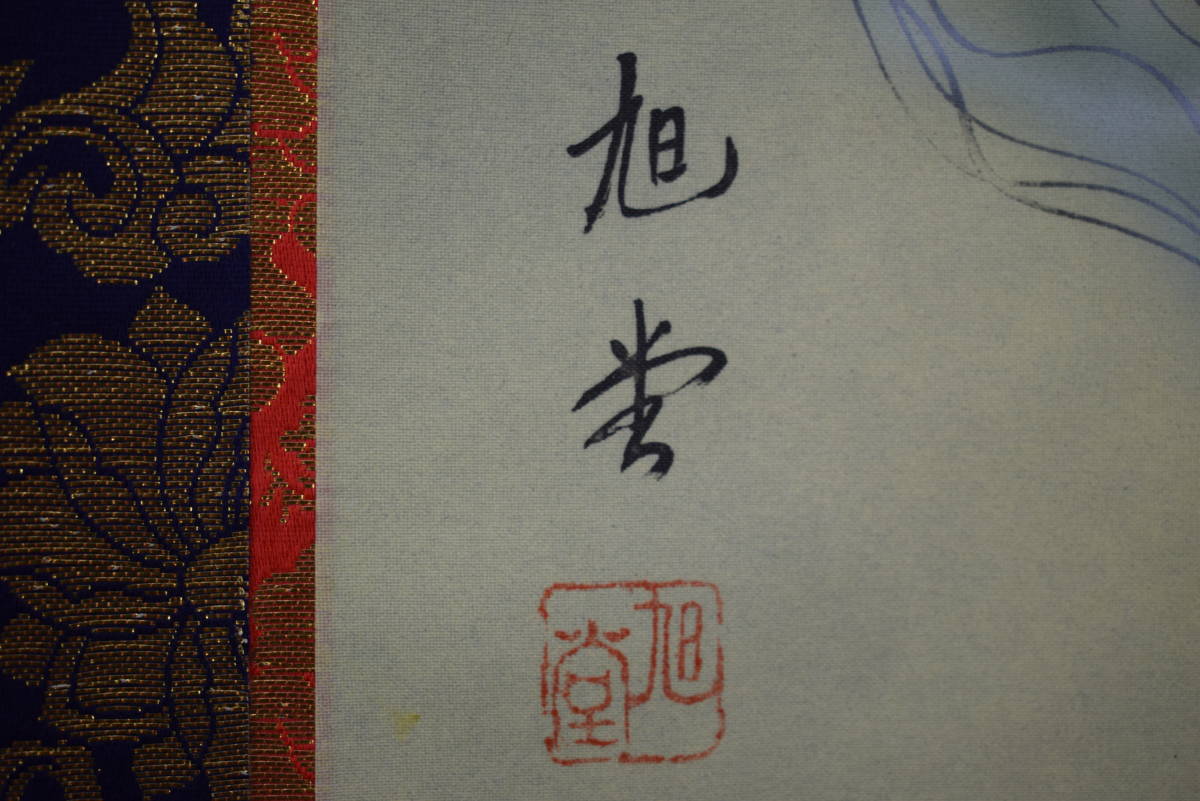 旭堂
旭堂